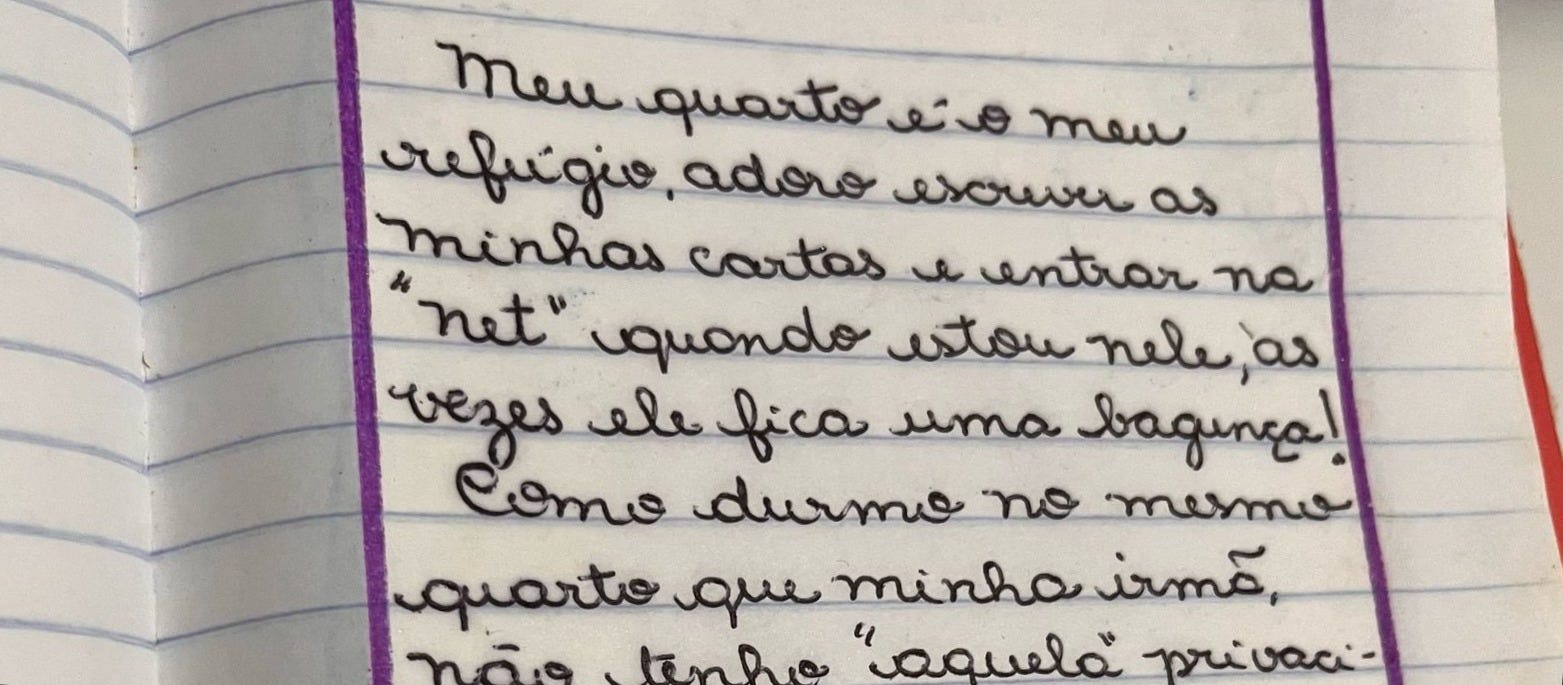 Meu quarto é o meu
refúgio, adoro escrever as
minhas cartas e entrar na
"net" quando estou nele, às
vezes ele fica uma bagunça!
Como durmo no mesmo
quarto que minha irmã,
não tenho "aquela" privaci-